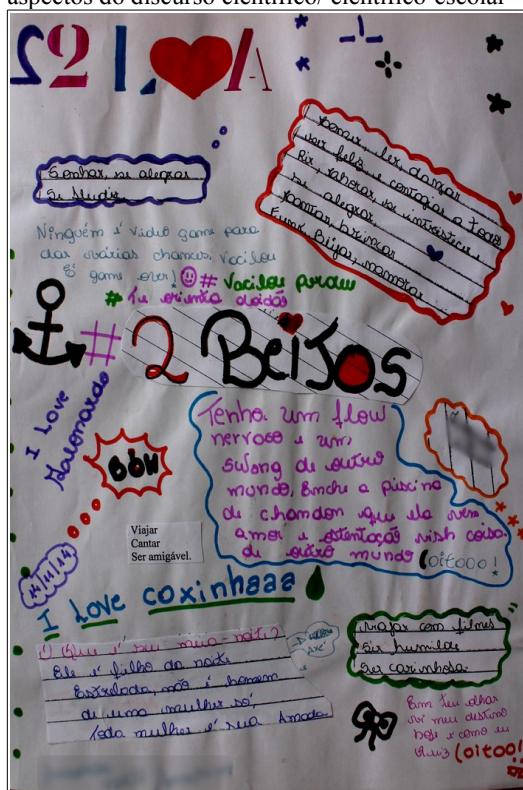 aspectos do discurso científico/ científico escolar
2 1 L A
Sonhar, se alegrar
Se iludir
ler, dançar
ser feliz e contagiar a todos
Rir, chorar, se entristecer e
se alegrar,
Cantar, brincar
beijar, namorar
Ninguém é vídeo game para
dar várias chances, Vacilou
É game over! # Vacilou perdeu
# Tu orienta doidão
# 2 BEiJOS
I Love
Tenho um flow
nervoso e um
swing de outro
mundo, Enche a piscina
de chandon que ela vem
amor e ostentação vish coisa
de outro mundo (oitooo!
Viajar
Cantar
Ser amigável.
14/11/14
I Love coxinhaaa
O Que é seu meia-noite?
Ele é filho da noite
Estrelada, não é homem
de uma mulher só,
Toda mulher é sua Amada
Viajar com filmes
Ser humilde
Ser carinhosa.
Em teu olhar
vi meu destino
hoje e como eu
(oitoo!